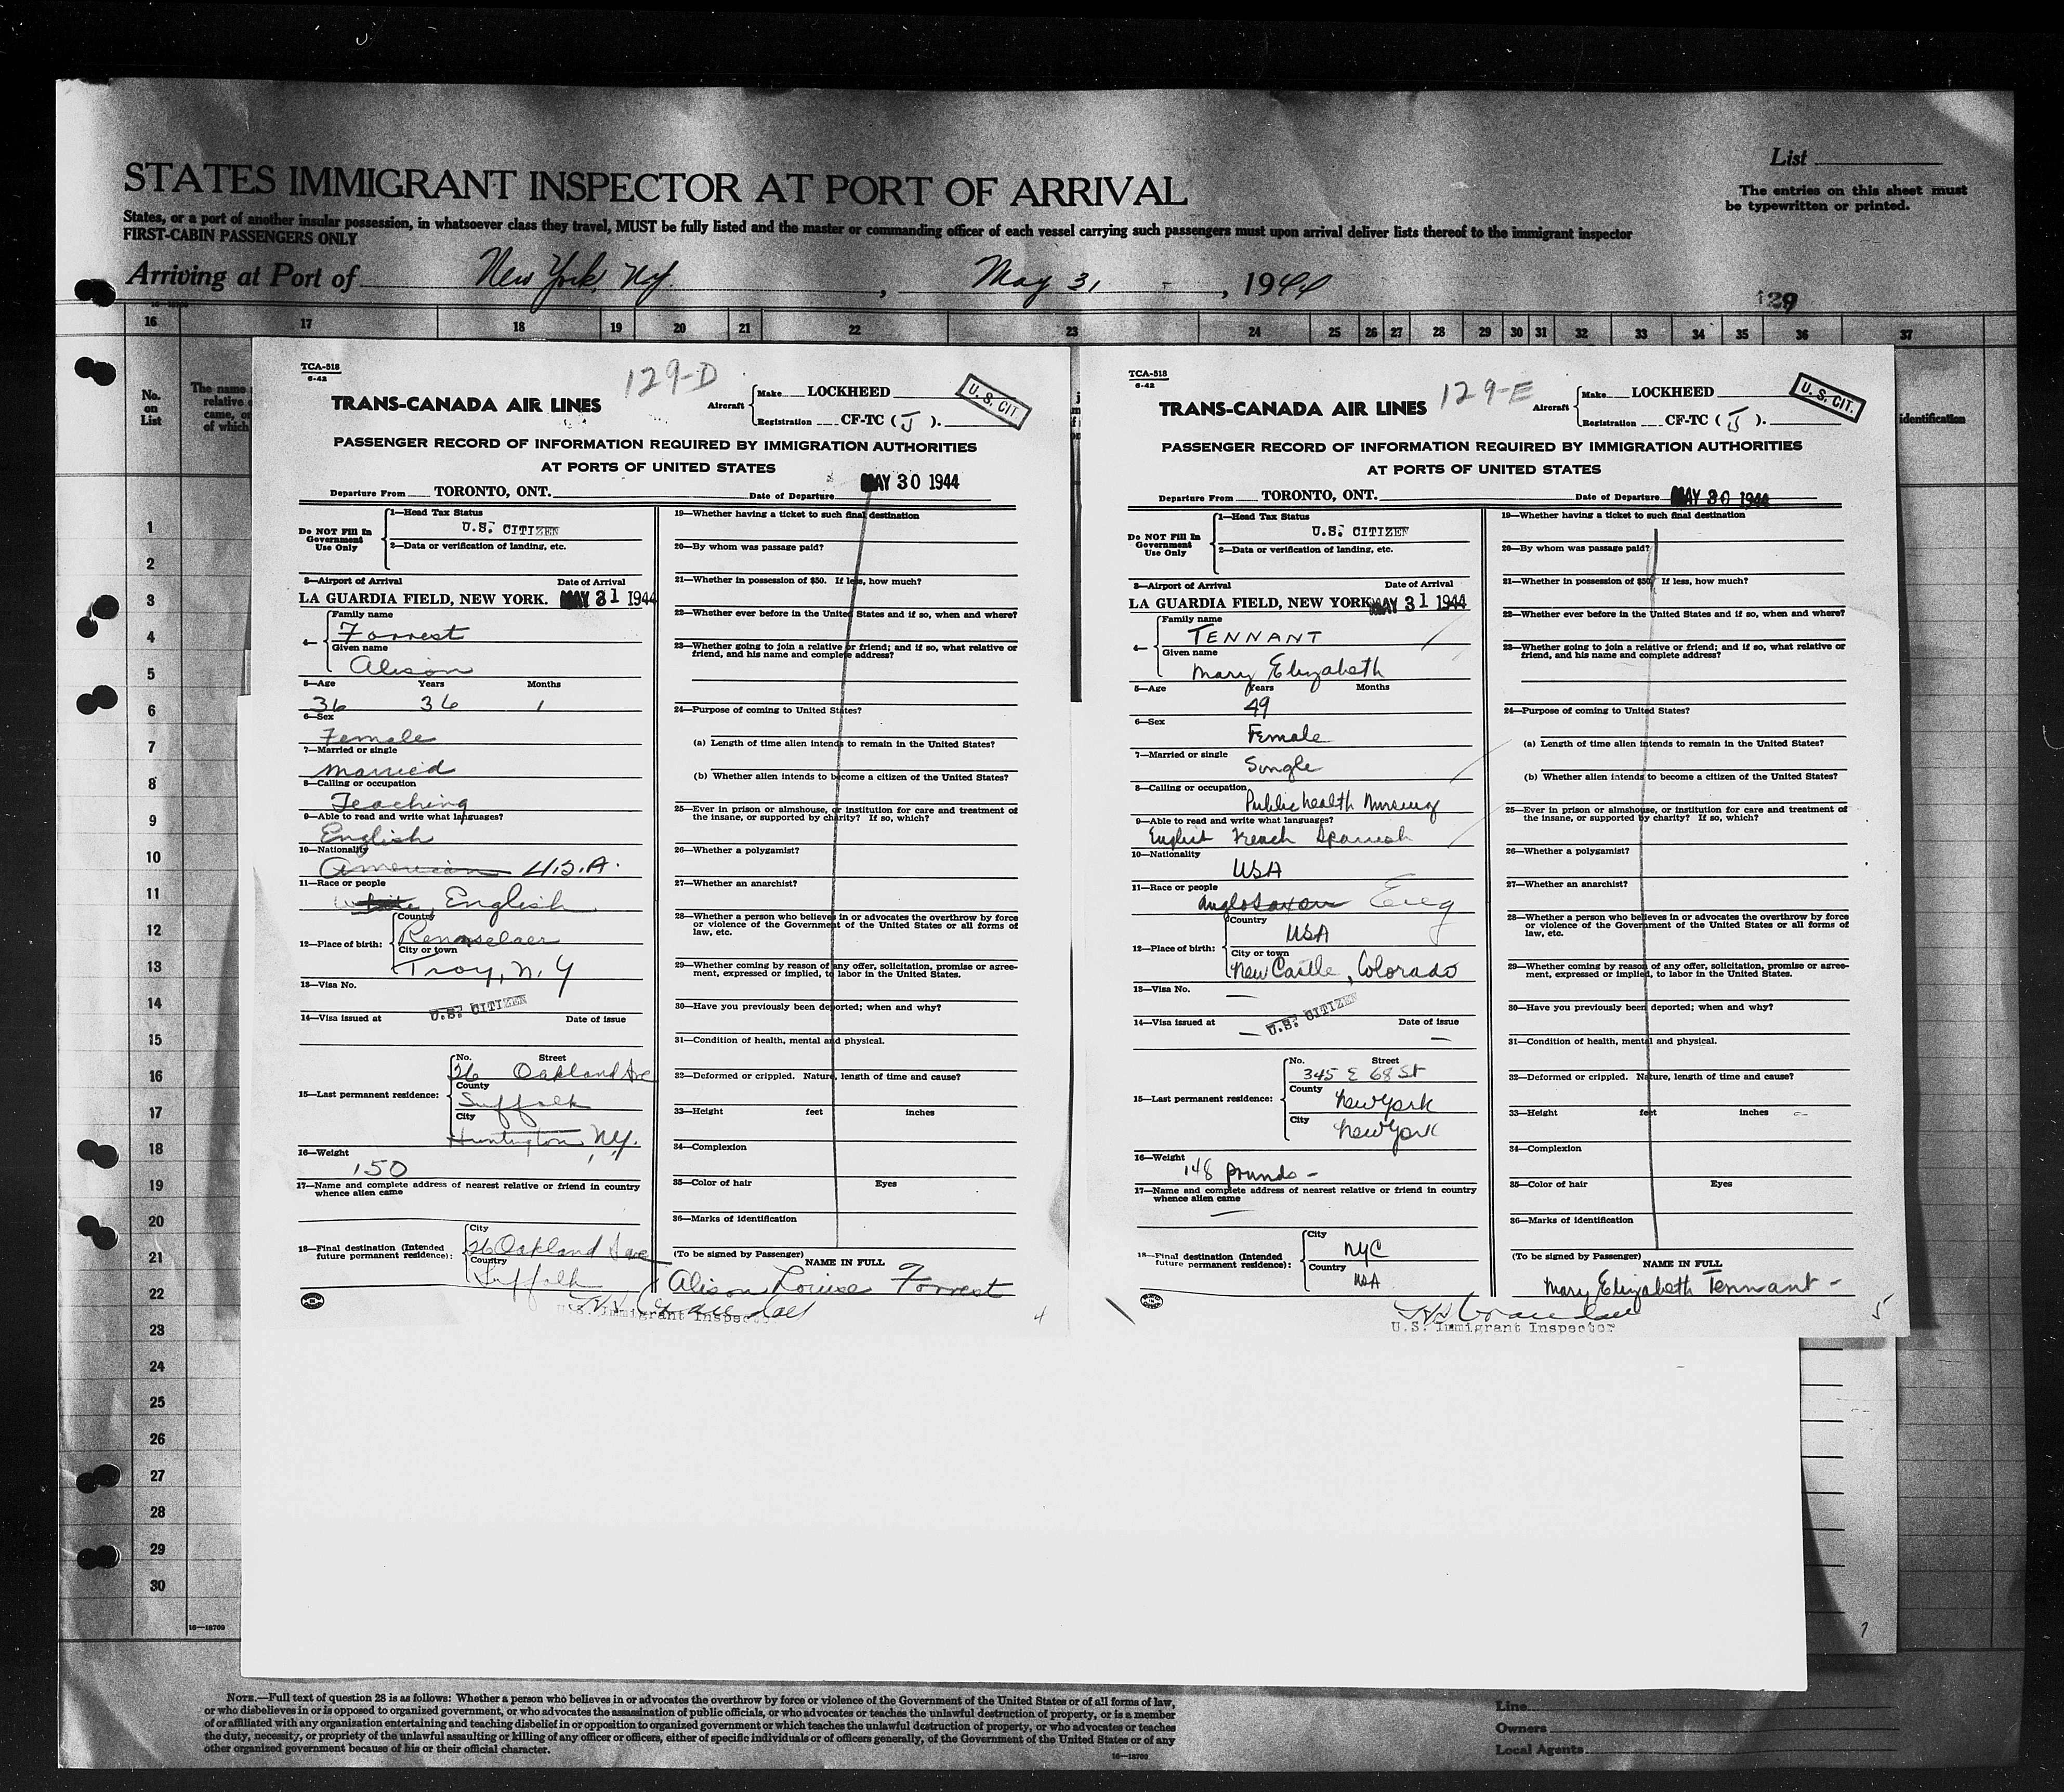 List
The entries on this sheet must
be typewritten or printed.
STATES IMMIGRANT INSPECTOR AT PORT OF ARRIVAL
States, or a port of another insular possession, in whatsoever class they travel, MUST be fully listed and the master or commanding officer of each vessel carrying such passengers must upon arrival deliver lists thereof to the immigrant inspector
FIRST-CABIN PASSENGERS ONLY
Arriving at Port of New York, NY. , May 31 , 1944
129
16 17 18 19 20 21 22 23 24 25 26 27 28 29 30 31 32 33 34 35 36 37
No.
on
List
The name
relative
came, or
of which
identification
1
2
3
4
5
6
7
8
9
10
11
12
13
14
15
16
17
18
19
20
21
22
23
24
25
26
27
28
29
30
16—18709
TCA-518
6-42
129-D
TRANS-CANADA AIR LINES
Aircraft
Make LOCKHEED
Registration CF-TC (J).
U. S. CIT.
PASSENGER RECORD OF INFORMATION REQUIRED BY IMMIGRATION AUTHORITIES
AT PORTS OF UNITED STATES
Departure From TORONTO, ONT. Date of Departure MAY 30 1944
Do NOT Fill In
Government
Use Only
1—Head Tax Status
U.S. CITIZEN
2—Data or verification of landing, etc.
3—Airport of Arrival Date of Arrival
LA GUARDIA FIELD, NEW YORK. MAY 31 1944
4—
Family name
Forrest
Given name
Alison
5—Age Years Months
36 36 1
6—Sex
Female
7—Married or single
Married
8—Calling or occupation
Teaching
9—Able to read and write what languages?
English
10—Nationality
American U.S.A.
11—Race or people
White, English
12—Place of birth:
Country
Rensselaer
City or town
Troy, N.Y
13—Visa No.
U.S. CITIZEN
14—Visa issued at Date of issue
15—Last permanent residence:
No. Street
26 Oakland Ave
County
Suffolk
City
Huntington, N.Y.
16—Weight
150
17—Name and complete address of nearest relative or friend in country
whence alien came
18—Final destination (Intended
future permanent residence):
City
26 Oakland Ave
Country
Suffolk
19—Whether having a ticket to such final destination
20—By whom was passage paid?
21—Whether in possession of $50. If less, how much?
22—Whether ever before in the United States and if so, when and where?
23—Whether going to join a relative or friend; and if so, what relative or
friend, and his name and complete address?
24—Purpose of coming to United States?
(a) Length of time alien intends to remain in the United States?
(b) Whether alien intends to become a citizen of the United States?
25—Ever in prison or almshouse, or institution for care and treatment of
the insane, or supported by charity? If so, which?
26—Whether a polygamist?
27—Whether an anarchist?
28—Whether a person who believes in or advocates the overthrow by force
or violence of the Government of the United States or all forms of
law, etc.
29—Whether coming by reason of any offer, solicitation, promise or agree-
ment, expressed or implied, to labor in the United States.
30—Have you previously been deported; when and why?
31—Condition of health, mental and physical.
32—Deformed or crippled. Nature, length of time and cause?
33—Height feet inches
34—Complexion
35—Color of hair Eyes
36—Marks of identification
(To be signed by Passenger)
NAME IN FULL
Alison Louise Forrest
U.S. Immigrant Inspector
4
TCA-518
6-42
129-E
TRANS-CANADA AIR LINES
Aircraft
Make LOCKHEED
Registration CF-TC (J).
U. S. CIT.
PASSENGER RECORD OF INFORMATION REQUIRED BY IMMIGRATION AUTHORITIES
AT PORTS OF UNITED STATES
Departure From TORONTO, ONT. Date of Departure MAY 30 1944
Do NOT Fill In
Government
Use Only
1—Head Tax Status
U.S. CITIZEN
2—Data or verification of landing, etc.
3—Airport of Arrival Date of Arrival
LA GUARDIA FIELD, NEW YORK. MAY 31 1944
4—
Family name
TENNANT
Given name
Mary Elizabeth
5—Age Years Months
49
6—Sex
Female
7—Married or single
Single
8—Calling or occupation
Public health Nursing
9—Able to read and write what languages?
English French Spanish
10—Nationality
USA
11—Race or people
Anglosaxon Eng
12—Place of birth:
Country
USA
City or town
New Castle, Colorado
13—Visa No.
U.S. CITIZEN
14—Visa issued at Date of issue
15—Last permanent residence:
No. Street
345 E 68 St
County
New York
City
New York
16—Weight
148 pounds -
17—Name and complete address of nearest relative or friend in country
whence alien came
18—Final destination (Intended
future permanent residence):
City
NYC
Country
USA
19—Whether having a ticket to such final destination
20—By whom was passage paid?
21—Whether in possession of $50. If less, how much?
22—Whether ever before in the United States and if so, when and where?
23—Whether going to join a relative or friend; and if so, what relative or
friend, and his name and complete address?
24—Purpose of coming to United States?
(a) Length of time alien intends to remain in the United States?
(b) Whether alien intends to become a citizen of the United States?
25—Ever in prison or almshouse, or institution for care and treatment of
the insane, or supported by charity? If so, which?
26—Whether a polygamist?
27—Whether an anarchist?
28—Whether a person who believes in or advocates the overthrow by force
or violence of the Government of the United States or all forms of
law, etc.
29—Whether coming by reason of any offer, solicitation, promise or agree-
ment, expressed or implied, to labor in the United States.
30—Have you previously been deported; when and why?
31—Condition of health, mental and physical.
32—Deformed or crippled. Nature, length of time and cause?
33—Height feet inches
34—Complexion
35—Color of hair Eyes
36—Marks of identification
(To be signed by Passenger)
NAME IN FULL
Mary Elizabeth Tennant -
U.S. Immigrant Inspector
5
7
NOTE.—Full text of question 28 is as follows: Whether a person who believes in or advocates the overthrow by force or violence of the Government of the United States or of all forms of law,
or who disbelieves in or is opposed to organized government, or who advocates the assassination of public officials, or who advocates or teaches the unlawful destruction of property, or is a member
of or affiliated with any organization entertaining and teaching disbelief in or opposition to organized government or which teaches the unlawful destruction of property, or who advocates or teaches
the duty, necessity, or propriety of the unlawful assaulting or killing of any officer or officers, either of specific individuals or of officers generally, of the Government of the United States or of any
other organized government because of his or their official character.
16—18709
Line
Owners
Local Agents